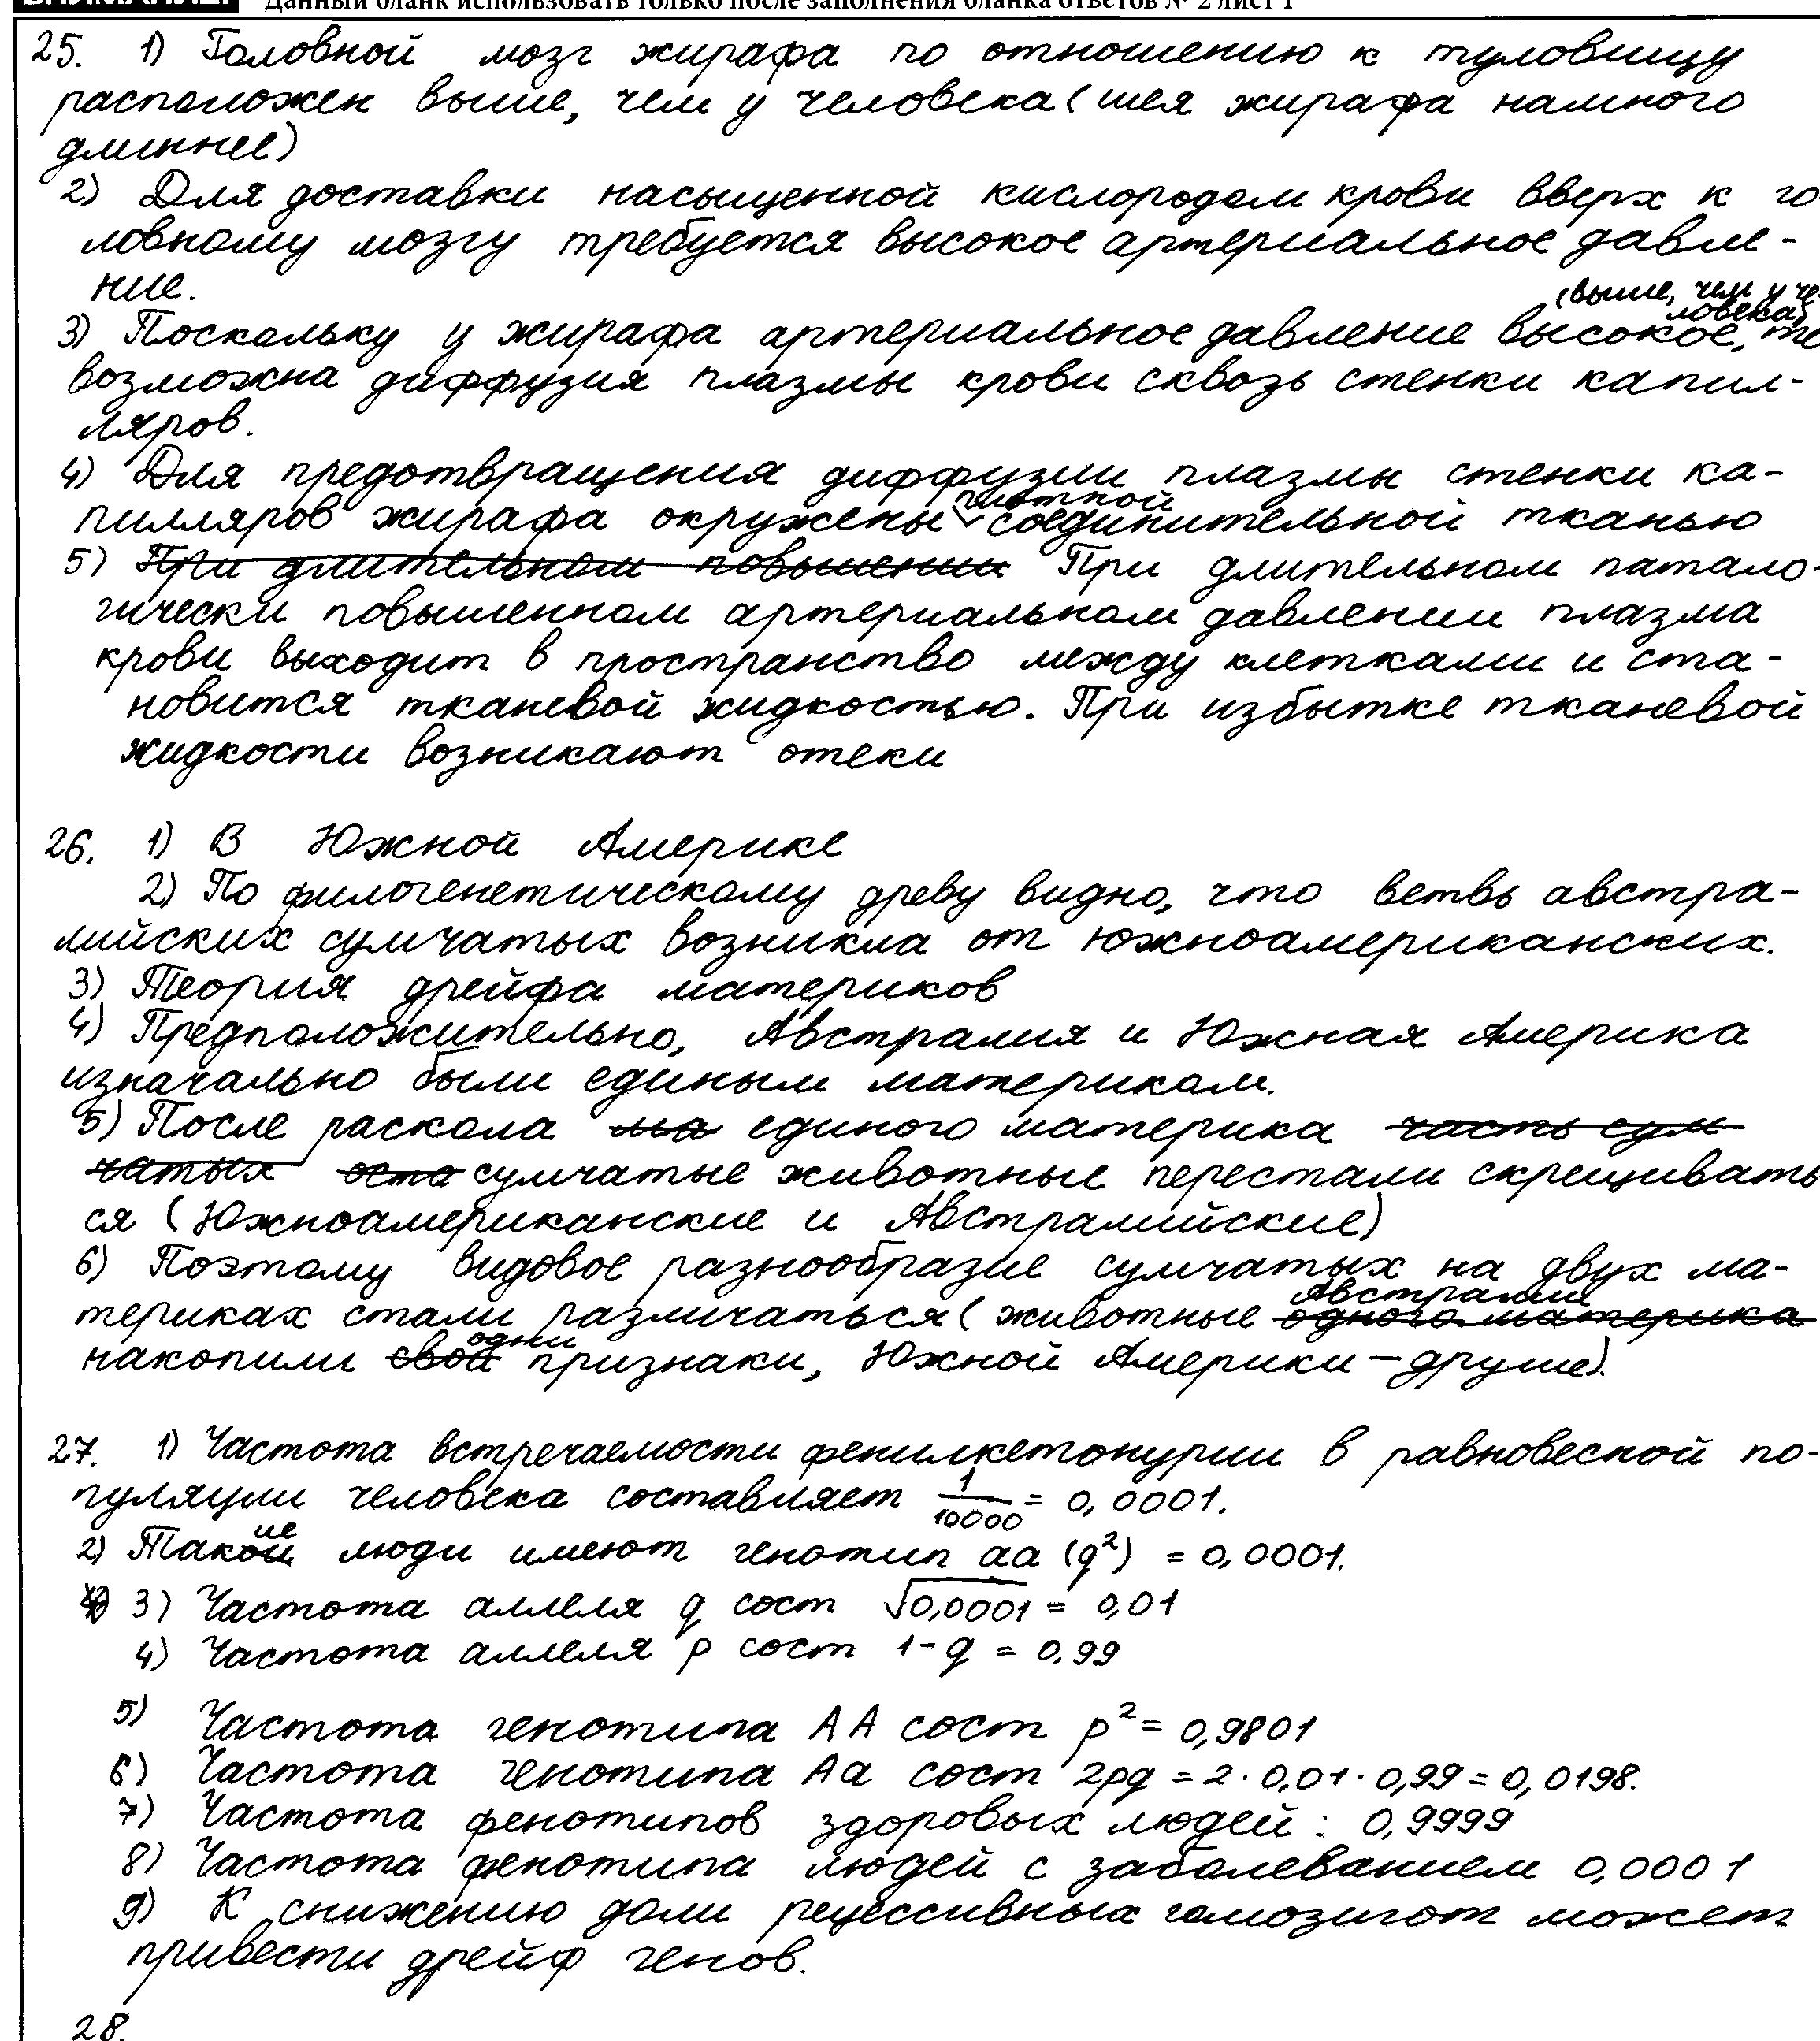 Данный бланк использовать только после заполнения бланка ответов № 2 лист 1
25. 1) Головной мозг жирафа по отношению к туловищу
расположен выше, чем у человека (шея жирафа намного
длиннее)
2) Для доставки насыщенной кислородом крови вверх к го-
ловному мозгу требуется высокое артериальное давле-
ние.
(выше, чем у че-
ловека)
3) Поскольку у жирафа артериальное давление высокое, то
возможна диффузия плазмы крови сквозь стенки капил-
ляров.
4) Для предотвращения диффузии плазмы стенки ка-
плотной
пилляров жирафа окружены соединительной тканью
5) При длительном повышении При длительном патало-
гически повышенном артериальном давлении плазма
крови выходит в пространство между клетками и ста-
новится тканевой жидкостью. При избытке тканевой
жидкости возникают отеки
26. 1) В Южной Америке
2) По филогенетическому древу видно, что ветвь австра-
лийских сумчатых возникла от южноамериканских.
3) Теория дрейфа материков
4) Предположительно, Австралия и Южная Америка
изначально были единым материком.
5) После раскола ма единого материка часть сум
чатых оста сумчатые животные перестали скрещивать
ся (Южноамериканские и Австралийские)
6) Поэтому видовое разнообразие сумчатых на двух ма-
Австралии
териках стали различаться (животные одного материка
одни
накопили свои признаки, Южной Америки – другие).
27. 1) Частота встречаемости фенилкетонурии в равновесной по-
пуляции человека составляет 1/10000 = 0,0001.
2) Такие люди имеют генотип aa (q²) = 0,0001.
3) Частота аллеля q сост √0,0001 = 0,01
4) Частота аллеля p сост 1-q = 0,99
5) Частота генотипа AA сост p² = 0,9801
6) Частота генотипа Aa сост 2pq = 2 · 0,01 · 0,99 = 0,0198.
7) Частота фенотипов здоровых людей : 0,9999
8) Частота фенотипа людей с заболеванием 0,0001
9) К снижению доли рецессивных гомозигот может
привести дрейф генов.
28.